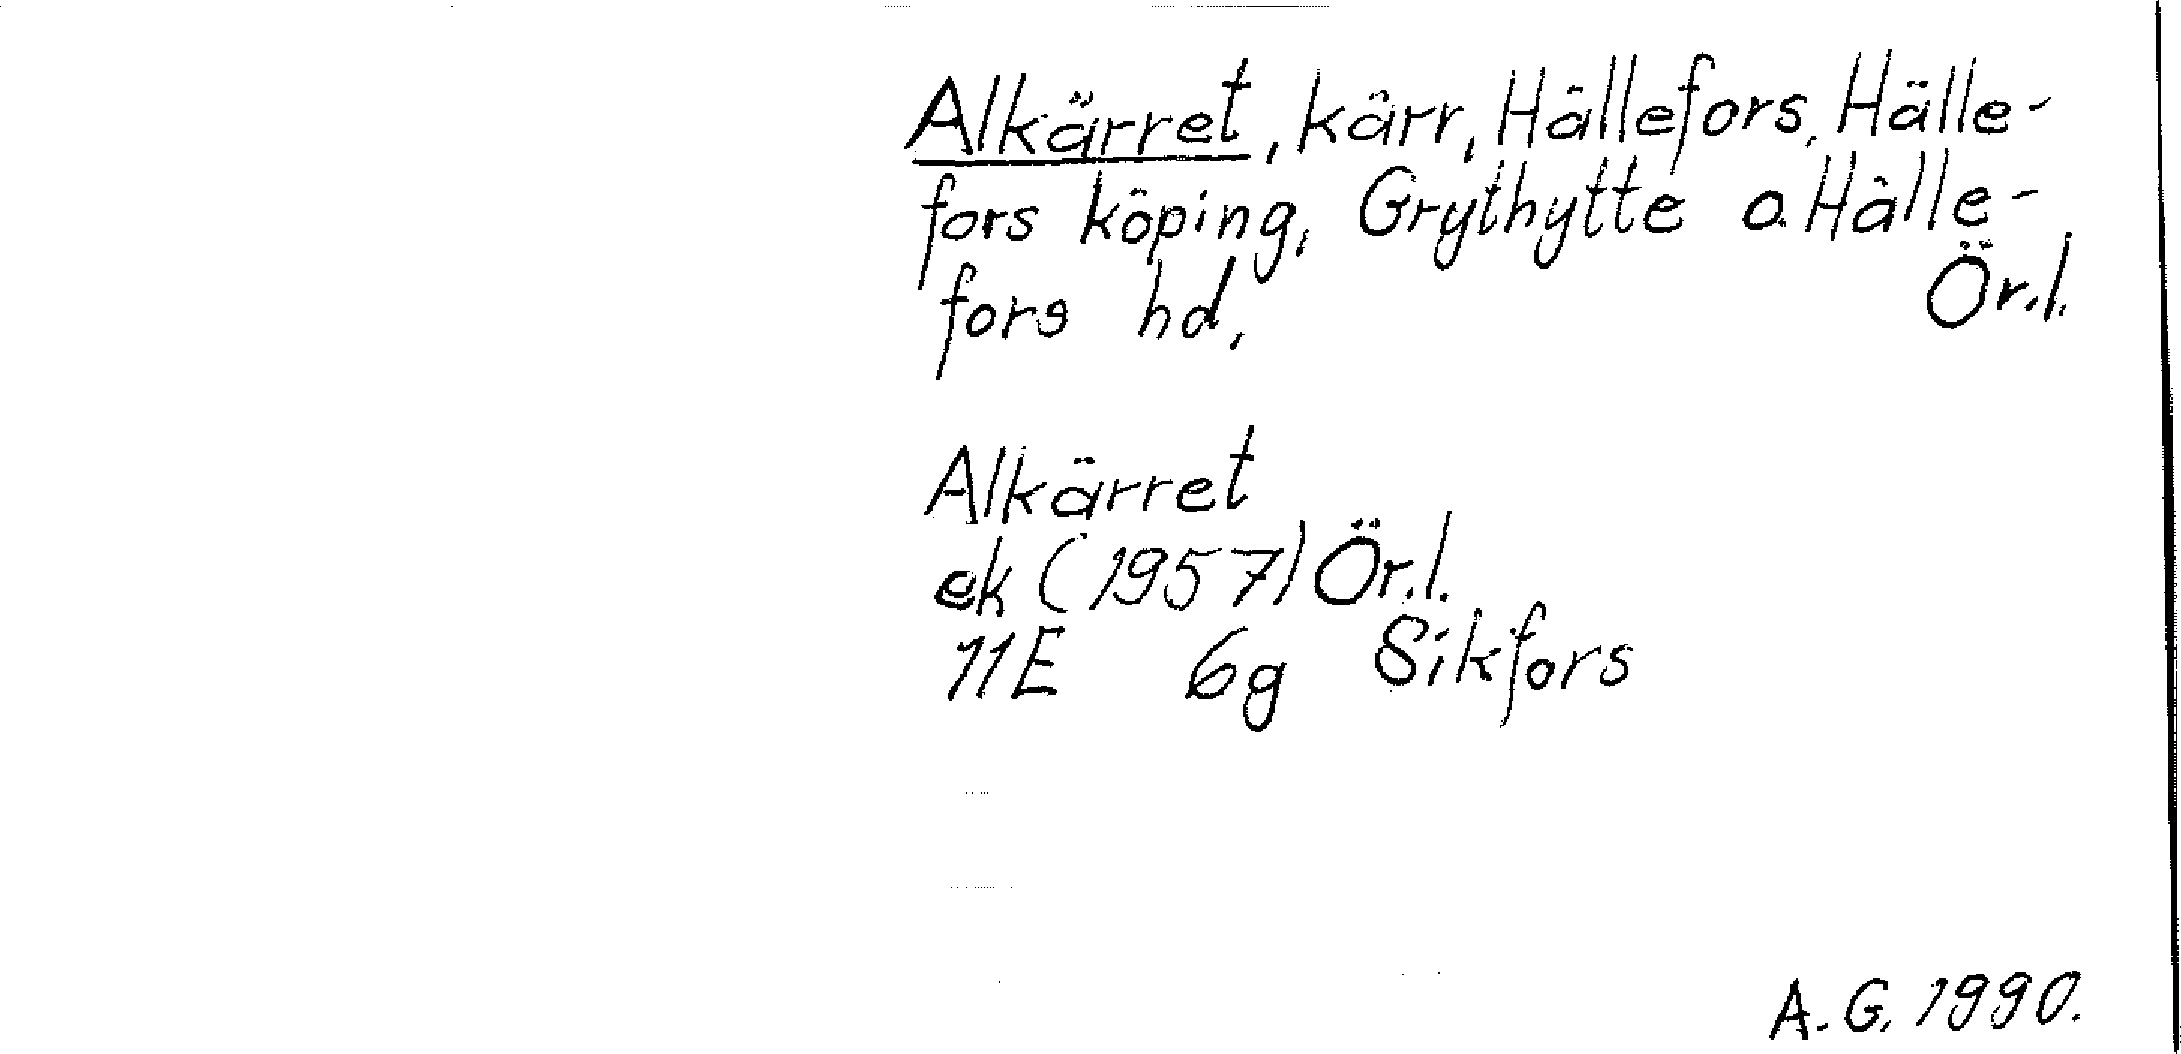 Alkärret, kärr, Hällefors, Hälle-
fors köping, Grythytte o. Hälle-
fors hd, Ör.l.
Alkärret
ek (1957) Ör.l.
11E 6g Sikfors
A.G. 1990.